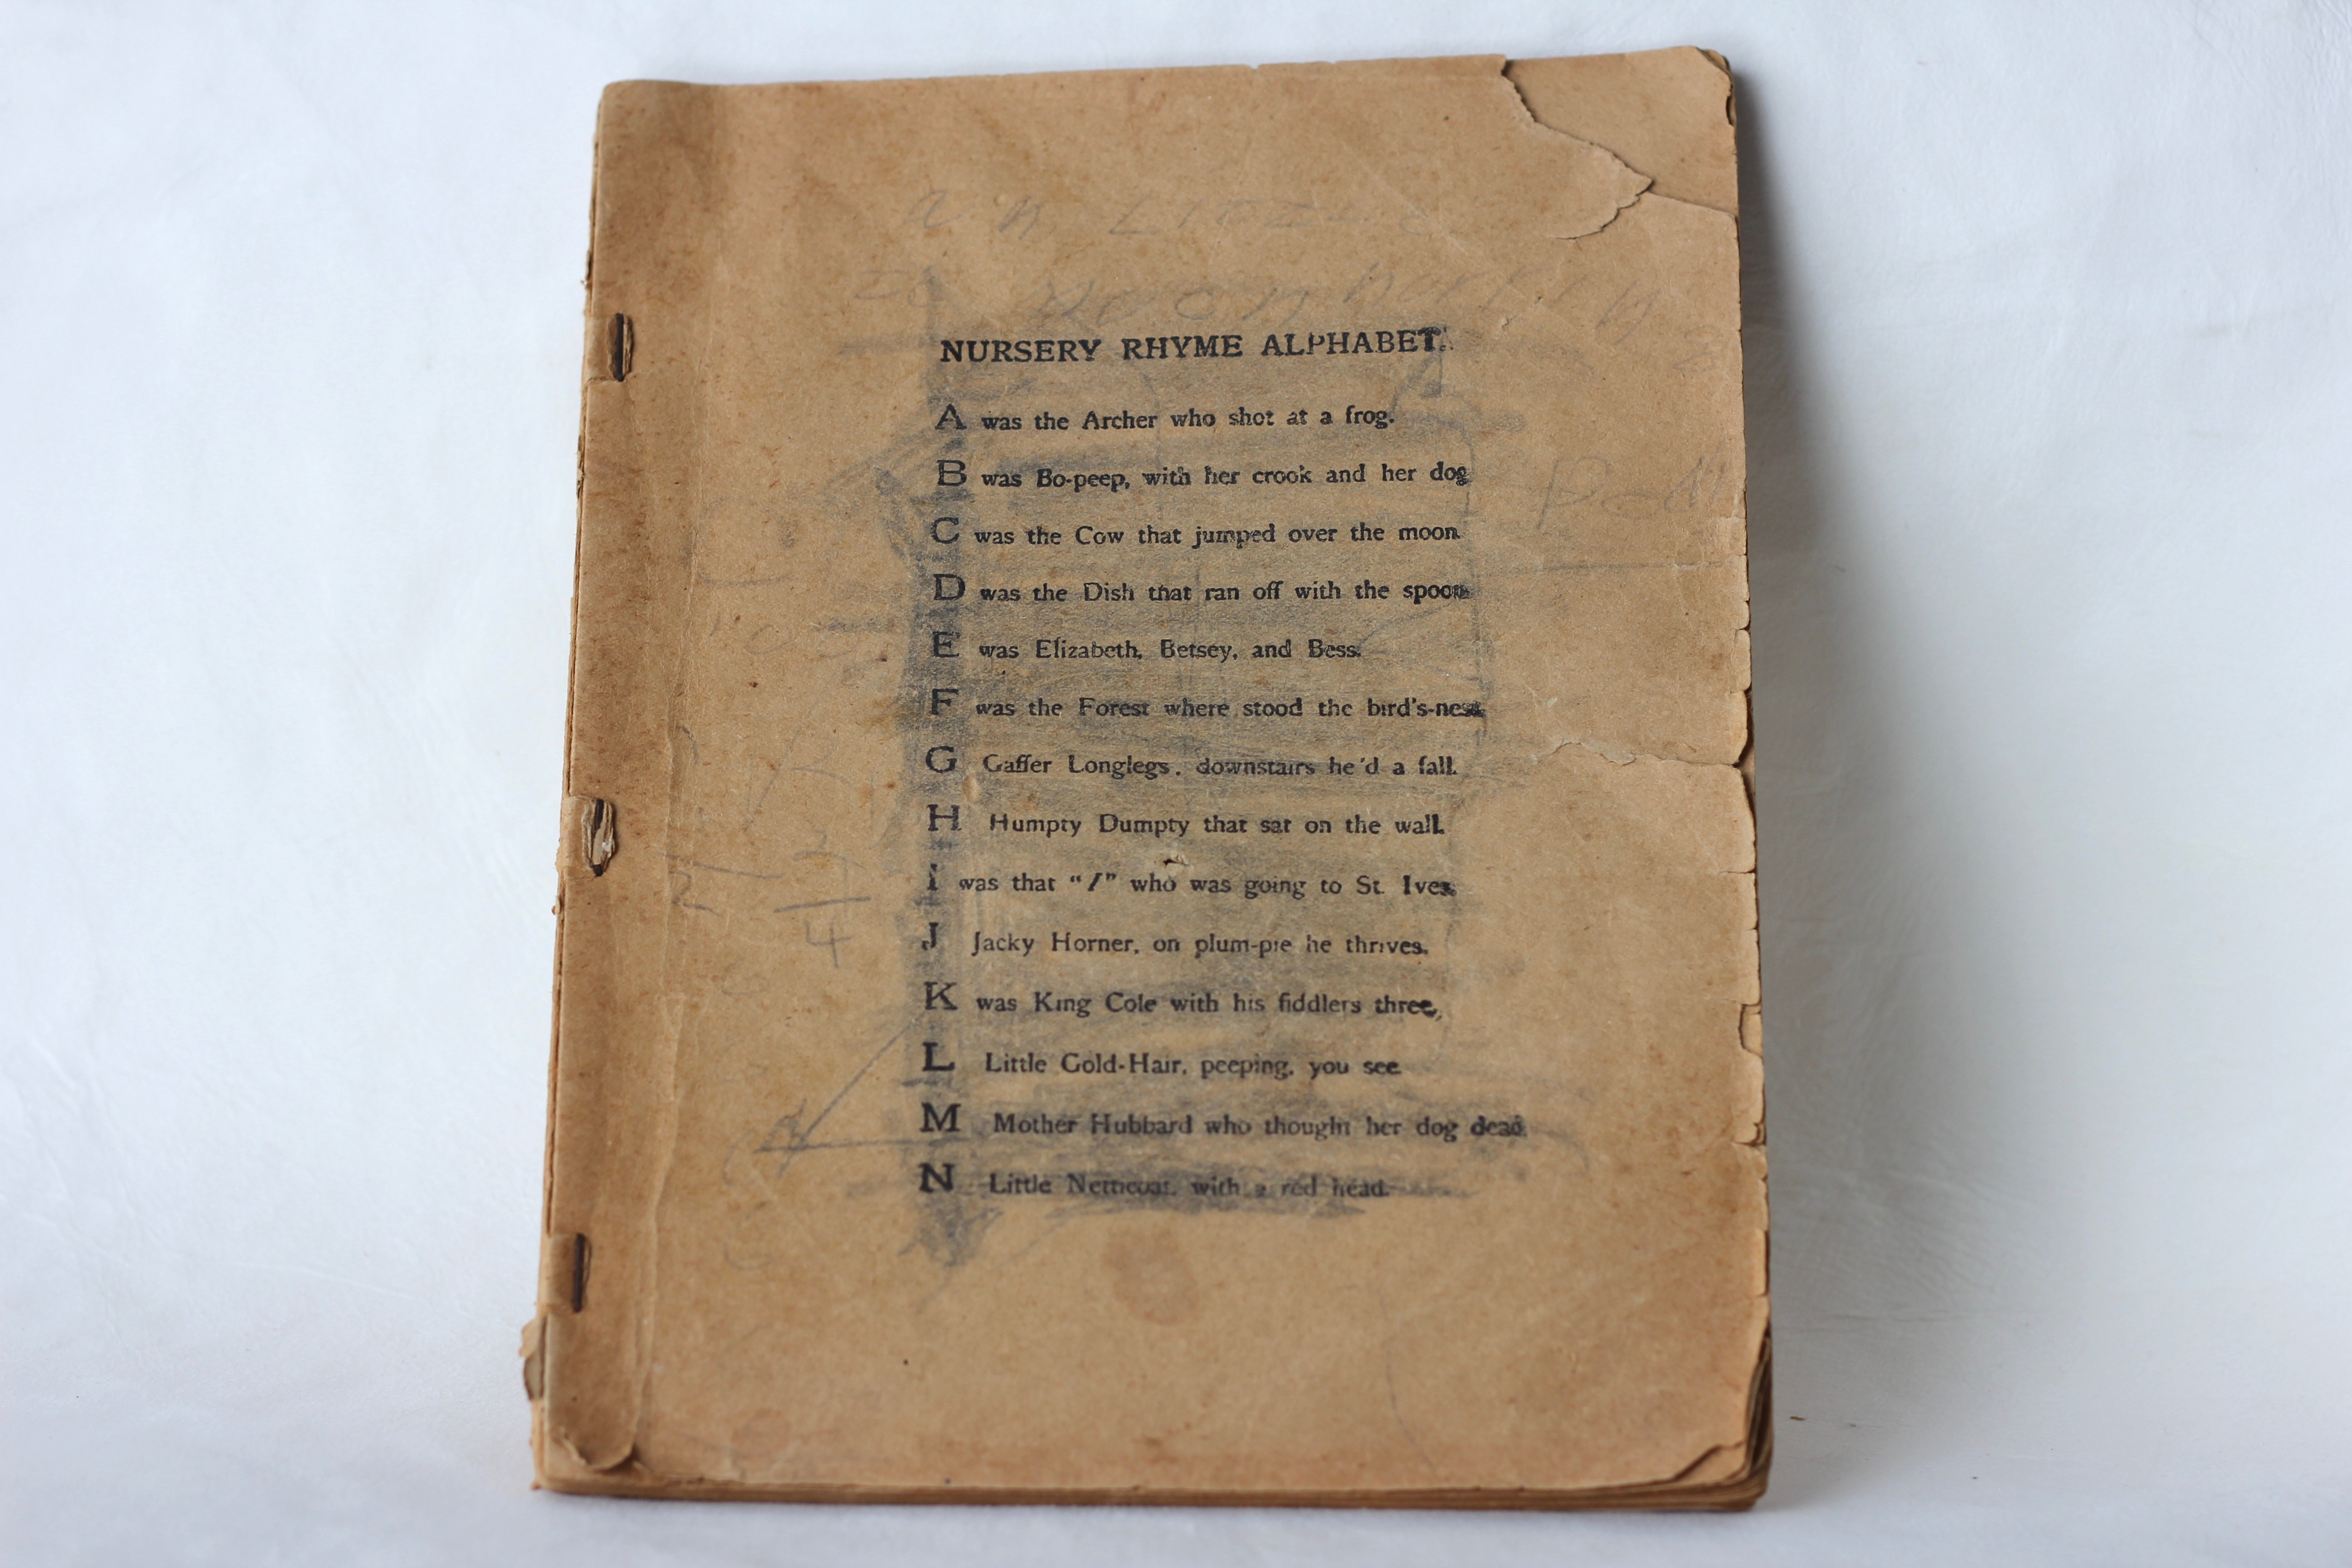 NURSERY RHYME ALPHABET.
A was the Archer who shot at a frog.
B was Bo-peep, with her crook and her dog
C was the Cow that jumped over the moon.
D was the Dish that ran off with the spoon
E was Elizabeth, Betsey, and Bess.
F was the Forest where stood the bird's-nest.
G Gaffer Longlegs, downstairs he'd a fall.
H Humpty Dumpty that sat on the wall.
I was that "I" who was going to St. Ives.
J Jacky Horner, on plum-pie he thrives.
K was King Cole with his fiddlers three,
L Little Gold-Hair, peeping, you see.
M Mother Hubbard who thought her dog dead.
N Little Netticoat, with a red head.
4